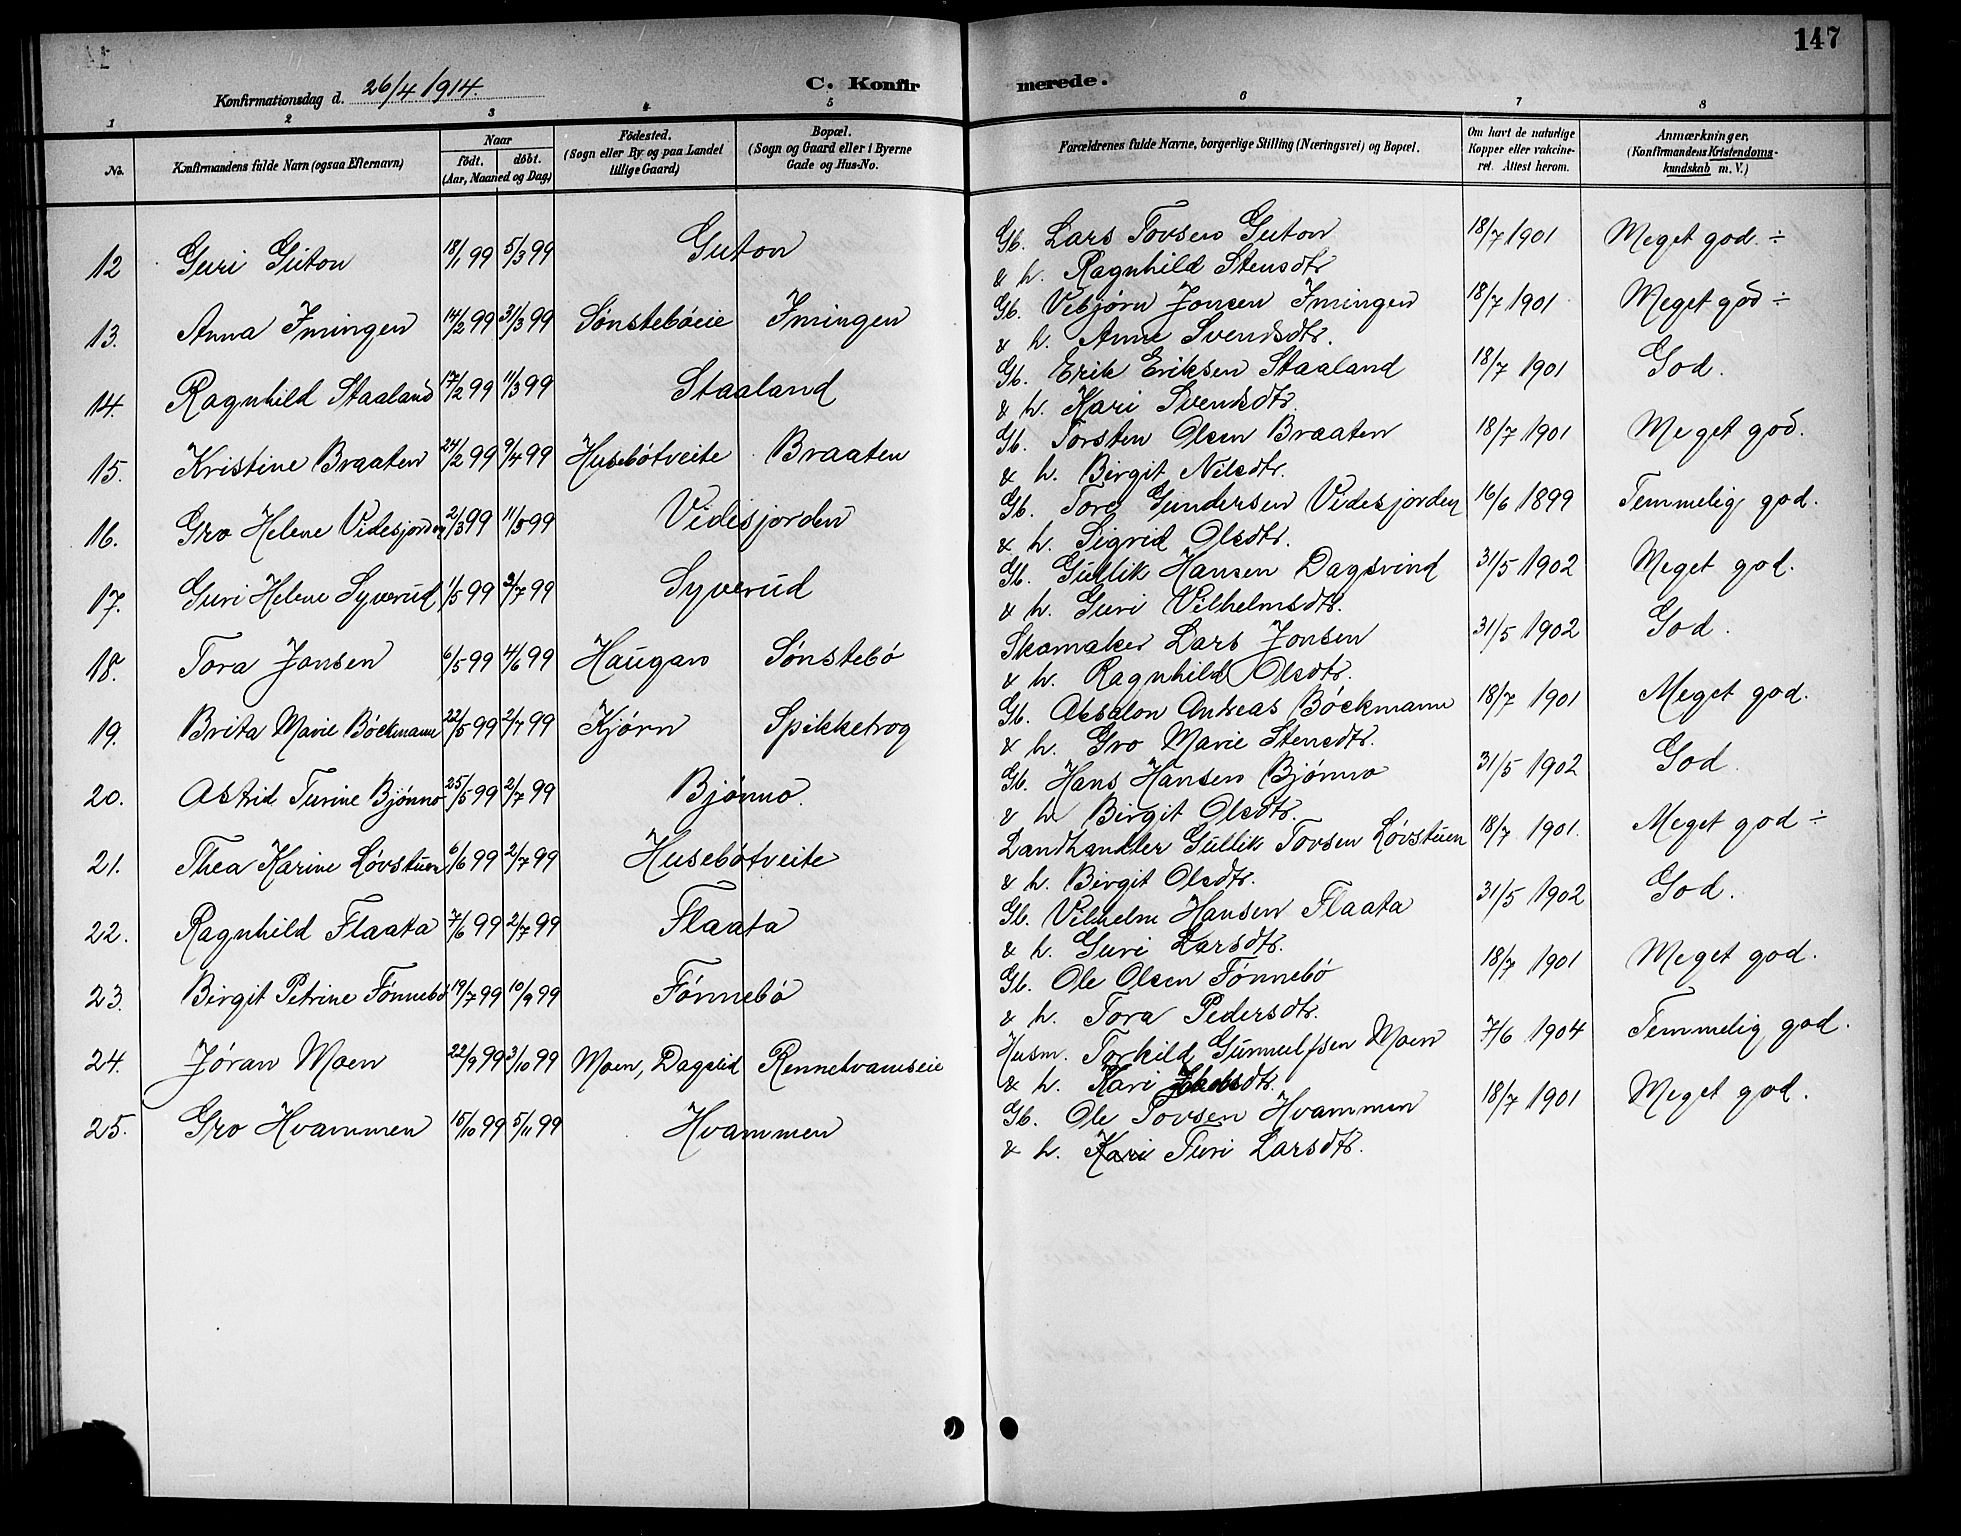 147
Konfirmationsdag d. 26/4 1914.
C. Konfirmerede.
1 2 3 4 5 6 7 8
No. Konfirmandens fulde Navn (ogsaa Efternavn) Naar födt. döbt. (Aar, Maaned og Dag) Födested. (Sogn eller By og paa Landet tillige Gaard) Bopæl. (Sogn og Gaard eller i Byerne Gade og Hus-No. Forældrenes fulde Navne, borgerlige Stilling (Næringsvei) og Bopæl. Om havt de naturlige Kopper eller vakcineret. Attest herom. Anmærkninger. (Konfirmandens Kristendomskundskab m. V.)
12 Guri Guton 18/1 99 5/3 99 Guton Gb. Lars Tovsen Guton 18/7 1901 Meget god. ÷
& h. Ragnhild Stensdtr
13. Anna Imingen 14/2 99 31/3 99 Sønstebøeie Imingen Gb. Vebjørn Jonsen Imingen 18/7 1901 Meget god ÷
& h. Anne Svendsdtr.
14. Ragnhild Staaland 17/2 99 11/3 99 Staaland Gb. Erik Eriksen Staaland 18/7 1901 God.
& h. Kari Svendsdtr.
15. Kristine Braaten 24/2 99 9/4 99 Husebøtveite Braaten Gb. Torsten Olsen Braaten 18/7 1901 Meget god.
& h. Birgit Nilsdtr.
16. Gro Helene Videsjorden 2/3 99 11/5 99 Videsjorden Gb. Tore Gundersen Videsjorden 16/6 1899 Temmelig god.
& h. Sigrid Olsdtr.
17. Guri Helene Syverud 1/5 99 2/7 99 Syverud Gb. Gullik Hansen Dagsvind 31/5 1902 Meget god.
& h. Guri Vilhelmsdtr.
18. Tora Jonsen 6/5 99 4/6 99 Haugan Sønstebø Skomaker Lars Jonsen 31/5 1902 God.
& h. Ragnhild Olsdtr.
19. Brita Marie Böckmann 22/5 99 2/7 99 Kjørn Spikketrog Gb. Absalon Andreas Böckmann 18/7 1901 Meget god.
& h. Gro Marie Stensdtr.
20. Astrid Turine Bjønno 25/5 99 2/7 99 Bjønno. Gb. Hans Hansen Bjønno 31/5 1902 God.
& h Birgit Olsdtr.
21. Thea Karine Løvstuen 6/6 99 2/7 99 Husebøtveite Landhandler Gullik Tovsen Løvstuen 18/7 1901. Meget god ÷
& h. Birgit Olsdtr.
22. Ragnhild Flaata 7/6 99 2/7 99 Flaata Gb. Vilhelm Hansen Flaata 31/5 1902 God.
& h. Guri Larsdtr.
23. Birgit Petrine Fønnebø 19/7 99 10/9 99 Fønnebø Gb. Ole Olsen Fønnebø 18/7 1901 Meget god.
& h. Tora Pedersdtr.
24. Jøran Moen 22/9 99 3/10 99 Moen, Dagslid Husm. Torkild Gunnulfsen Moen 7/6 1904 Temmelig god.
& h. Kari
25. Gro Hvammen 15/10 99 5/11 99 Hvammen Gb. Ole Tovsen Hvammen 18/7 1901 Meget god.
& h. Kari Turi Larsdtr.